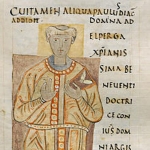 CUITAMEN ALIQUA PAULUS DIAC
ADDIDIT DOMNA AD
ELPERGA
XPIANIS
SIMA BE
NEVENTI
DOCTRI
CE CON
IUS DOM
NI ARGIS